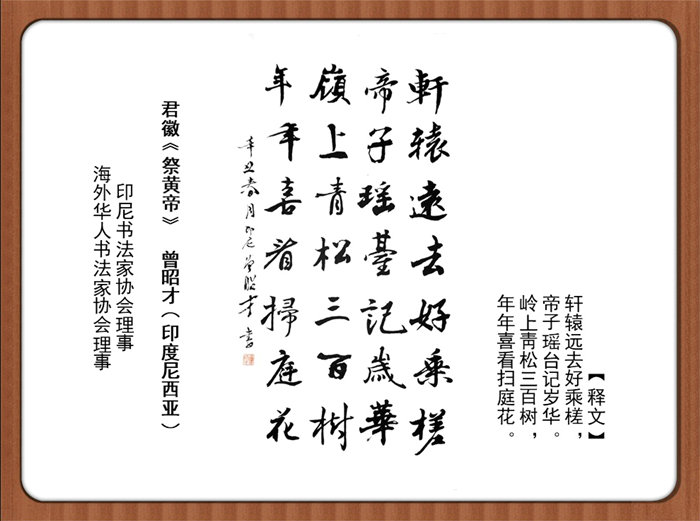 【释文】
轩辕远去好乘槎，
帝子瑶台记岁华。
岭上青松三百树，
年年喜看扫庭花。
軒辕遠去好乘槎
帝子瑶臺記歳華
嶺上青松三百樹
年年喜看掃庭花
辛丑春月印尼曾昭才書
君徽《祭黄帝》 曾昭才（印度尼西亚）
印尼书法家协会理事
海外华人书法家协会理事